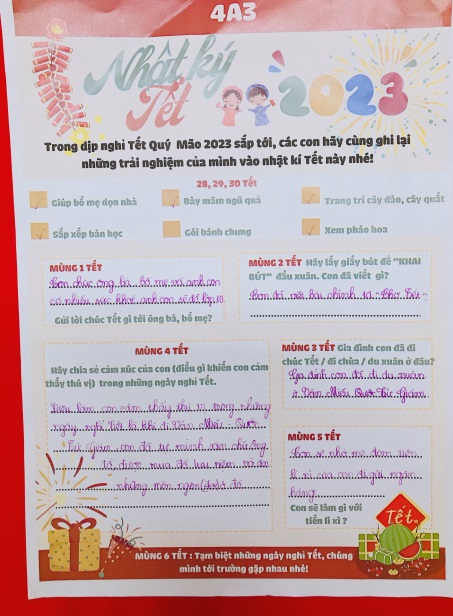 4A3
Nhật ký
Tết
2023
Trong dịp nghỉ Tết Quý Mão 2023 sắp tới, các con hãy cùng ghi lại
những trải nghiệm của mình vào nhật kí Tết này nhé!
28, 29, 30 Tết
Giúp bố mẹ dọn nhà
Bày mâm ngũ quả
Trang trí cây đào, cây quất
Sắp xếp bàn học
Gói bánh chưng
Xem pháo hoa
MÙNG 1 TẾT
Con chúc ông bà, bố mẹ và anh con
có nhiều sức khoẻ, anh con sẽ đỗ lớp 10
Gửi lời chúc Tết gì tới ông bà, bố mẹ?
MÙNG 2 TẾT Hãy lấy giấy bút để "KHAI
BÚT" đầu xuân. Con đã viết gì?
Con đã viết bài chính tả "Chợ Tết"
MÙNG 3 TẾT Gia đình con đã đi
chúc Tết / đi chùa / du xuân ở đâu?
Gia đình con đã đi du xuân
ở Văn Miếu Quốc Tử Giám
MÙNG 4 TẾT
Hãy chia sẻ cảm xúc của con (điều gì khiến con cảm
thấy thú vị) trong những ngày nghỉ Tết.
Điều làm con cảm thấy thú vị trong những
ngày nghỉ Tết là khi đi Văn Miếu - Quốc
Tử Giám, con đã tự mình xin chữ ông
đồ, được mua đồ lưu niệm và ăn
những món ngon ở đó
MÙNG 5 TẾT
Con sẽ nhờ mẹ đem tiền
lì xì của con đi gửi ngân
hàng
Con sẽ làm gì với
tiền lì xì ?
Tết
MÙNG 6 TẾT : Tạm biệt những ngày nghỉ Tết, chúng
mình tới trường gặp nhau nhé!